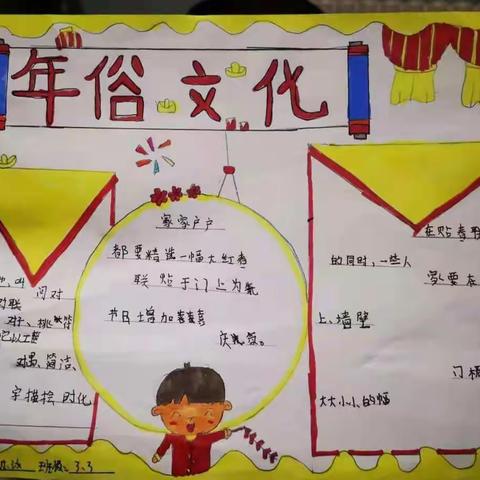 年俗文化
叫门对
对联
对子、桃符等
它以工整
对偶、简洁、
字描绘时代
家家户户
都要精选一幅大红春
联贴于门上为
节日增加喜喜喜
庆气氛。
在贴春联
的同时，一些人
家要在
上、墙壁
门楣
大大小小的福
班级：3.3